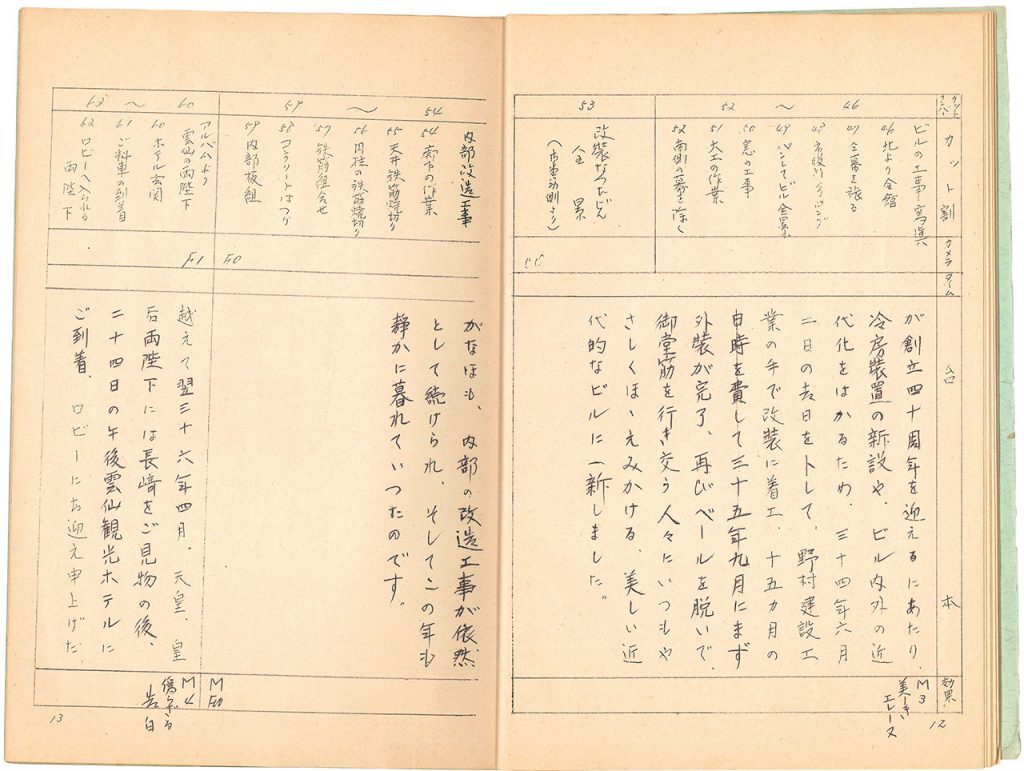 カット
ナンバー
カット割
カメラ
タイム
台本
効果
46
〜
52
ビルの工事寫真
46 北より会館
47 全幕を張る
49 パンしてビル全景
50 窓の工事
51 大工の作業
52 南側の幕を除く
が創立四十周年を迎えるにあたり、
冷房装置の新設や、ビル内外の近
代化をはかるため、三十四年六月
二日の吉日をトして、野村建設工
業の手で改装に着工、十五ヵ月の
日時を費して三十五年九月にまず
外装が完了、再びベールを脱いで、
御堂筋を行き交う人々にいつもや
さしくほゝえみかける、美しい近
代的なビルに一新しました。
M
3
美しき
エレーヌ
53
改装なったビル
全景
12
54
〜
59
内部改造工事
54 廊下の作業
55 天井鉄筋焼切り
56 円柱の鉄筋焼切り
57 鉄筋組合せ
58 コンクリートはつり
59 内部板組
F0
がなほも、内部の改造工事が依然
として続けられ、そしてこの年も
静かに暮れていつたのです。
M
F0
60
〜
62
アルバムより
雲仙の両陛下
60 ホテル玄関
61 ご料車の到着
62 ロビーへ入られる
両陛下
F1
越えて翌三十六年四月、天皇、皇
后両陛下には長崎をご見物の後、
二十四日の午後雲仙観光ホテルに
ご到着、ロビーにお迎え申上げた
M
4
告白
13